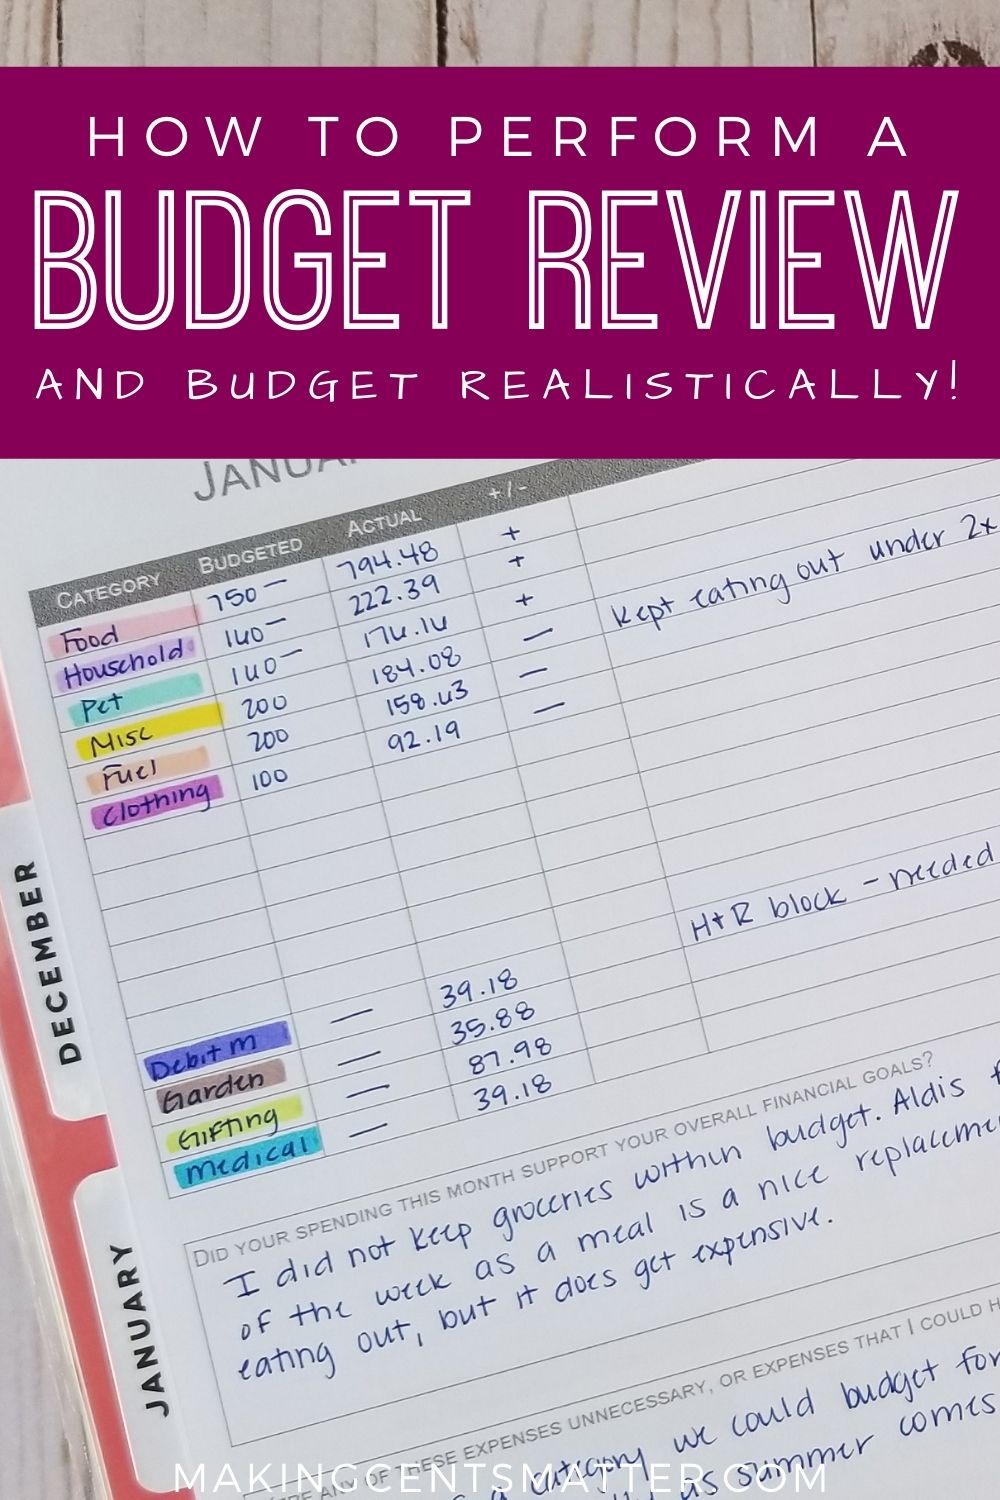 HOW TO PERFORM A
BUDGET REVIEW
AND BUDGET REALISTICALLY!
CATEGORY BUDGETED ACTUAL +/-
Food 750— 794.48 +
Household 140— 222.39 +
Pet 140— 174.14 +
Misc 200 184.08 —
Fuel 200 158.43 —
Clothing 100 92.19 —
Kept eating out under 2x
H+R block - needed
Debit M — 39.18
Garden — 35.88
Gifting — 87.98
Medical — 39.18
DECEMBER
JANUARY
DID YOUR SPENDING THIS MONTH SUPPORT YOUR OVERALL FINANCIAL GOALS?
I did not keep groceries within budget. Aldis
of the week as a meal is a nice
eating out, but it does get expensive.
OF THESE EXPENSES UNNECESSARY, OR EXPENSES THAT I COULD
category we could budget for
as summer comes
MAKINGCENTSMATTER.COM